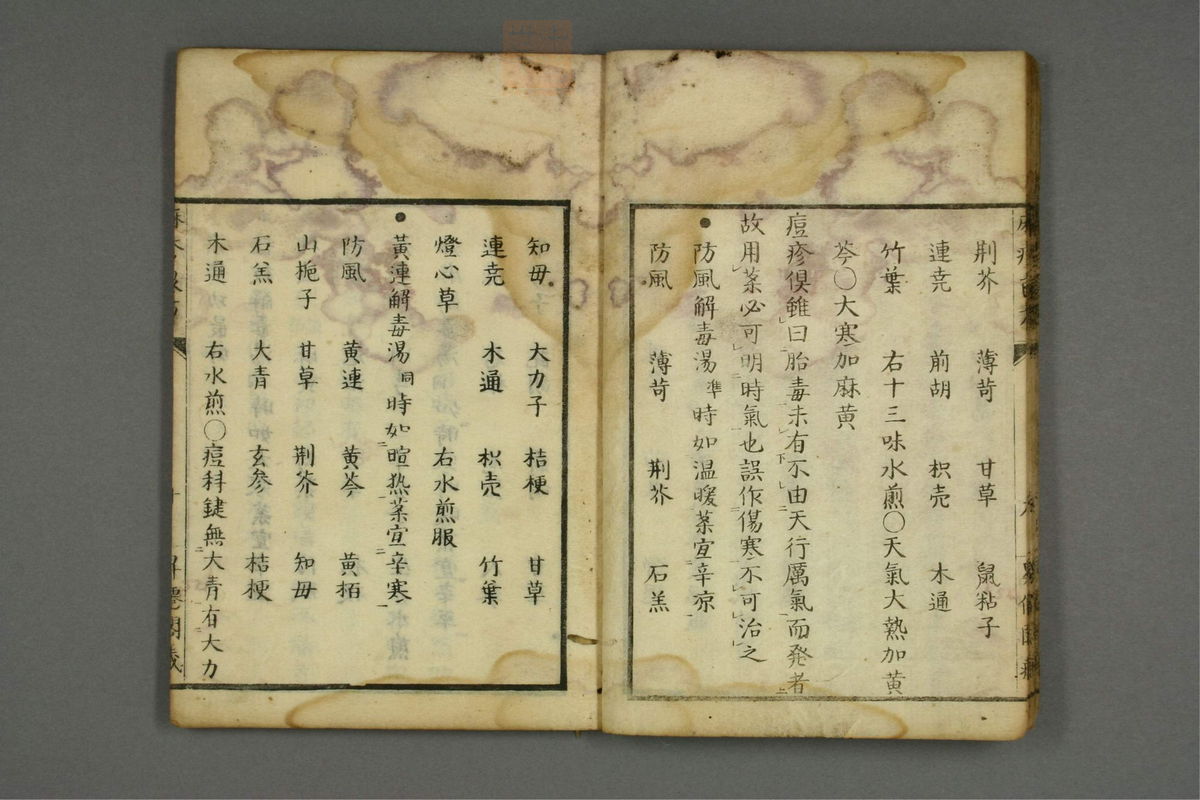 荆芥 薄苛 甘草 鼠粘子
連尭 前胡 枳壳 木通
竹葉 右十三味水煎〇天氣大熱加黄
芩〇大寒加麻黄
痘疹俱雖曰胎毒未有不由天行厲氣而発者
故用薬必可明時氣也誤作傷寒不可治之
●防風解毒湯準時如温暖薬宜辛凉
防風 薄苛 荆芥 石羔
知毋 大力子 桔梗 甘草
連尭 木通 枳壳 竹葉
燈心草 右水煎服
●黃連解毒湯同時如暄热薬宜辛寒
防風 黄連 黄芩 黄栢
山栀子 甘草 荆芥 知毋
石羔 大青 玄参 桔梗
木通 右水煎〇痘科鍵無大青有大力